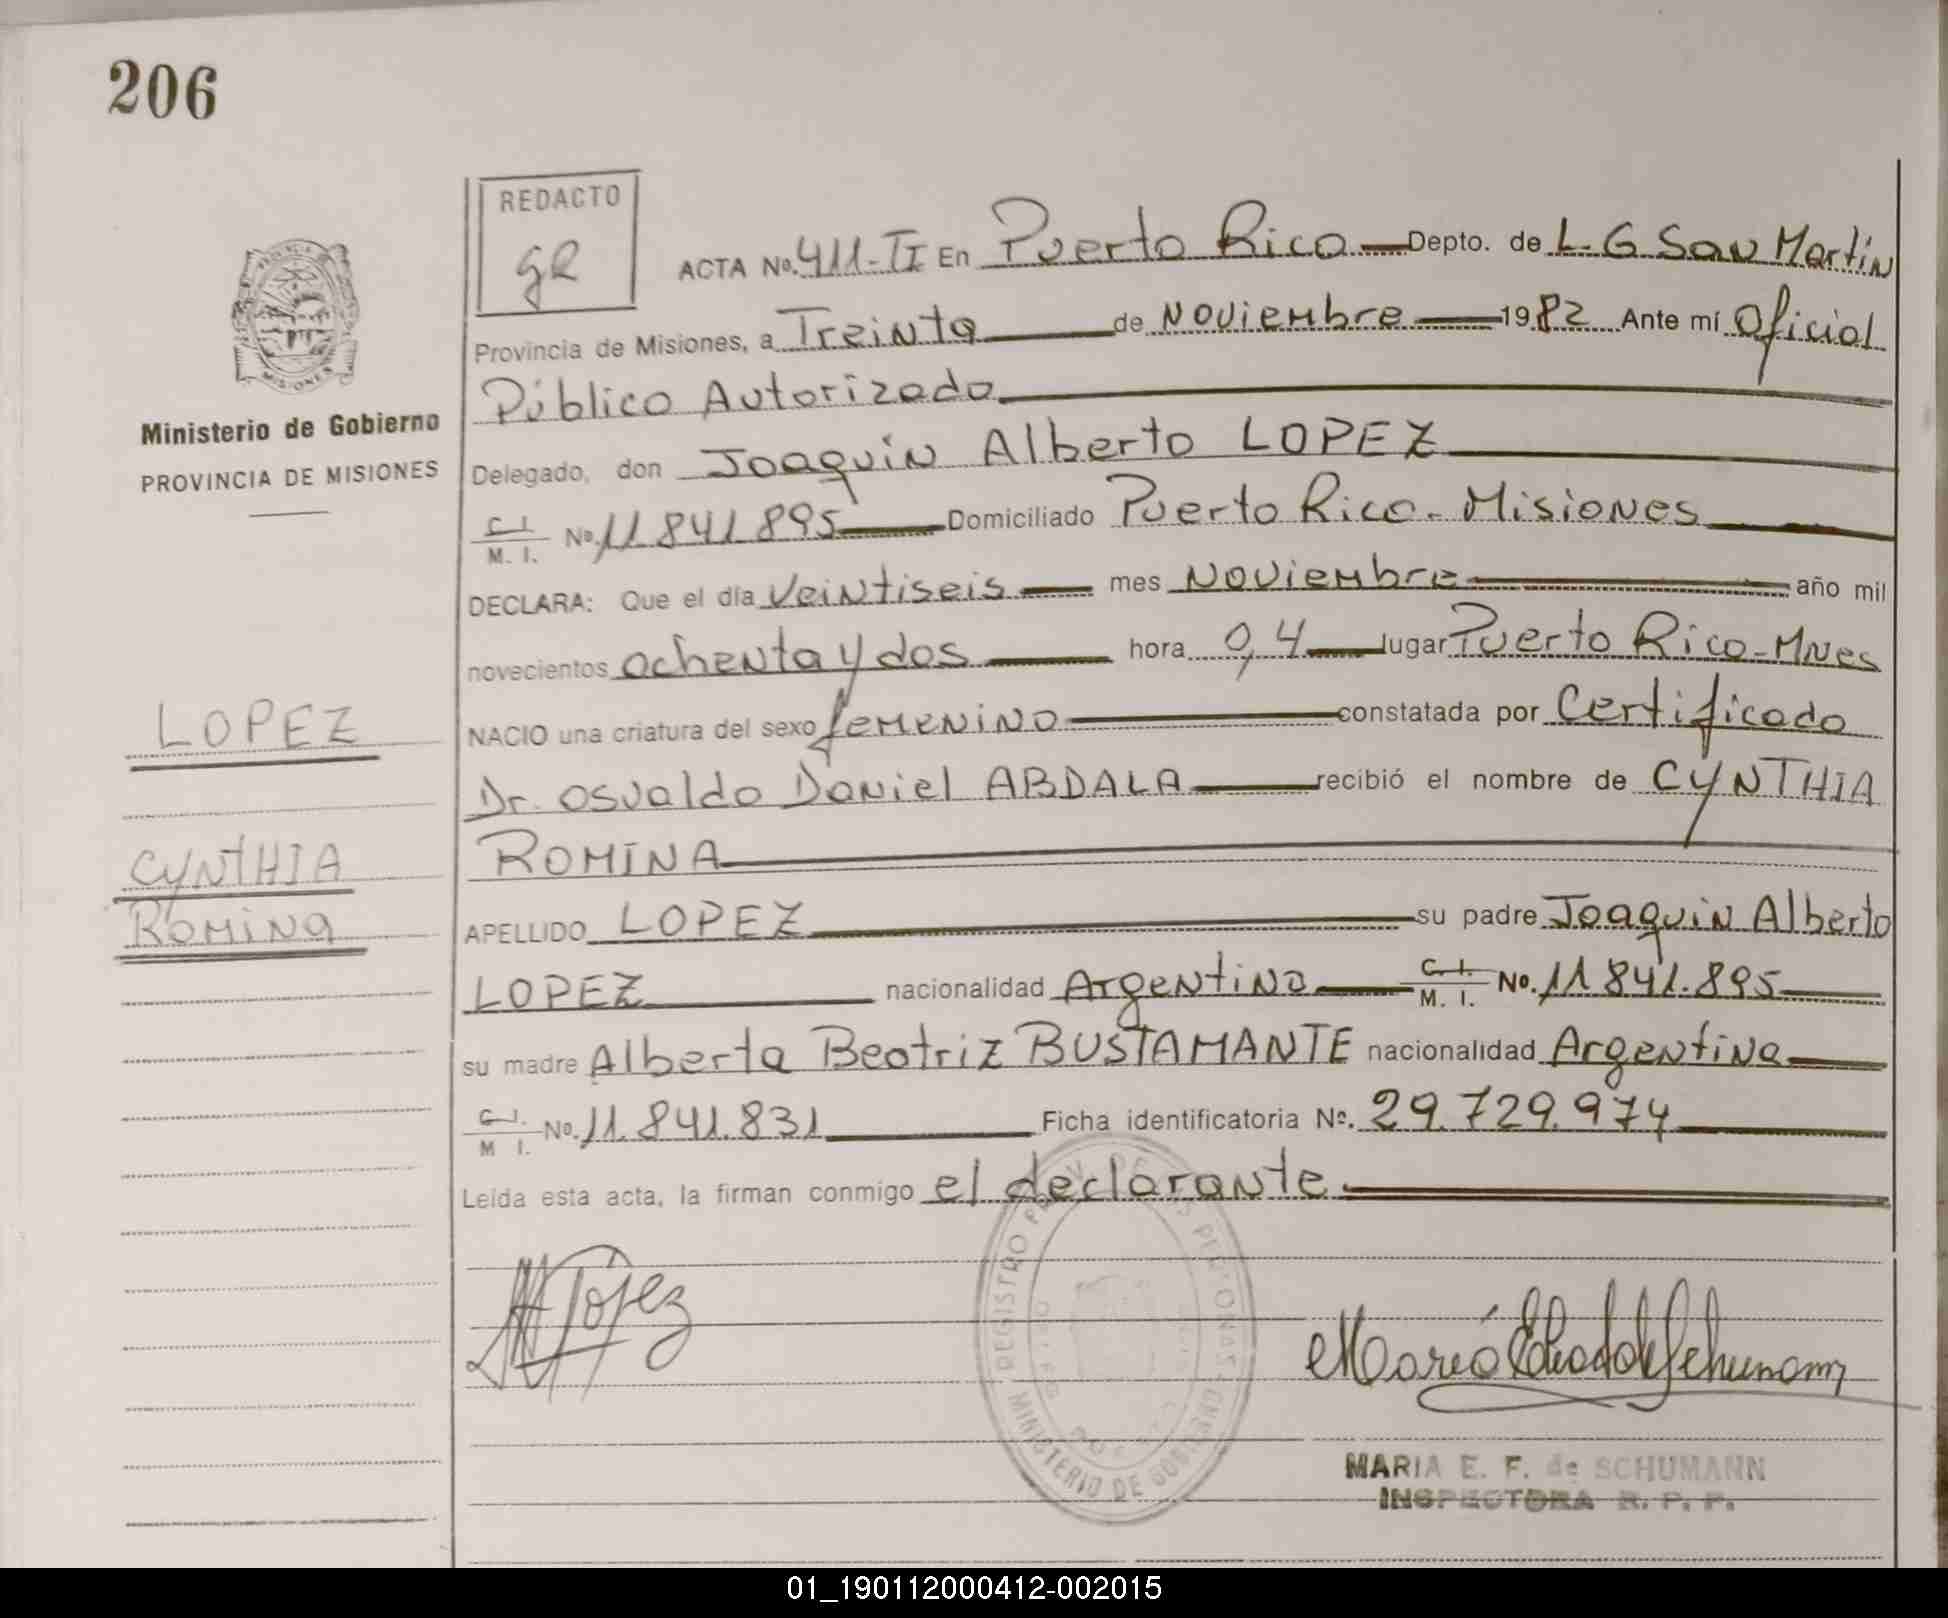 206
REDACTO
gR
ACTA No. 411-II En Puerto Rico Depto. de L. G San Martin
Provincia de Misiones, a Treinta de Noviembre 1982 Ante mí Oficial
Público Autorizado
Delegado, don Joaquin Alberto LOPEZ
C. I.
M. I. No. 11 841 895 Domiciliado Puerto Rico - Misiones
DECLARA: Que el día Veintiseis mes Noviembre año mil
novecientos ochenta y dos hora 0,4 lugar Puerto Rico-Mnes
NACIO una criatura del sexo femenino constatada por Certificado
Dr. Osvaldo Daniel ABDALA recibió el nombre de CYNTHIA
ROMINA
APELLIDO LOPEZ su padre Joaquin Alberto
LOPEZ nacionalidad Argentino C. I.
M. I. No. 11 841.895
su madre Alberta Beatriz BUSTAMANTE nacionalidad Argentina
C. I.
M I. No. 11.841.831 Ficha identificatoria No. 29.729.974
Leída esta acta, la firman conmigo el declarante
Ministerio de Gobierno
PROVINCIA DE MISIONES
LOPEZ
CYNTHIA
ROMINA
MISIONES
López
REGISTRO PROV. DE LAS PERSONAS
MINISTERIO DE GOBIERNO
MARIA E. F. de SCHUMANN
INSPECTORA R. P. P.
01_190112000412-002015